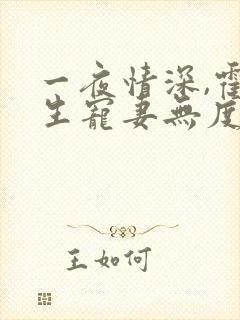 一夜情深,霍
生寵妻無度
王如何